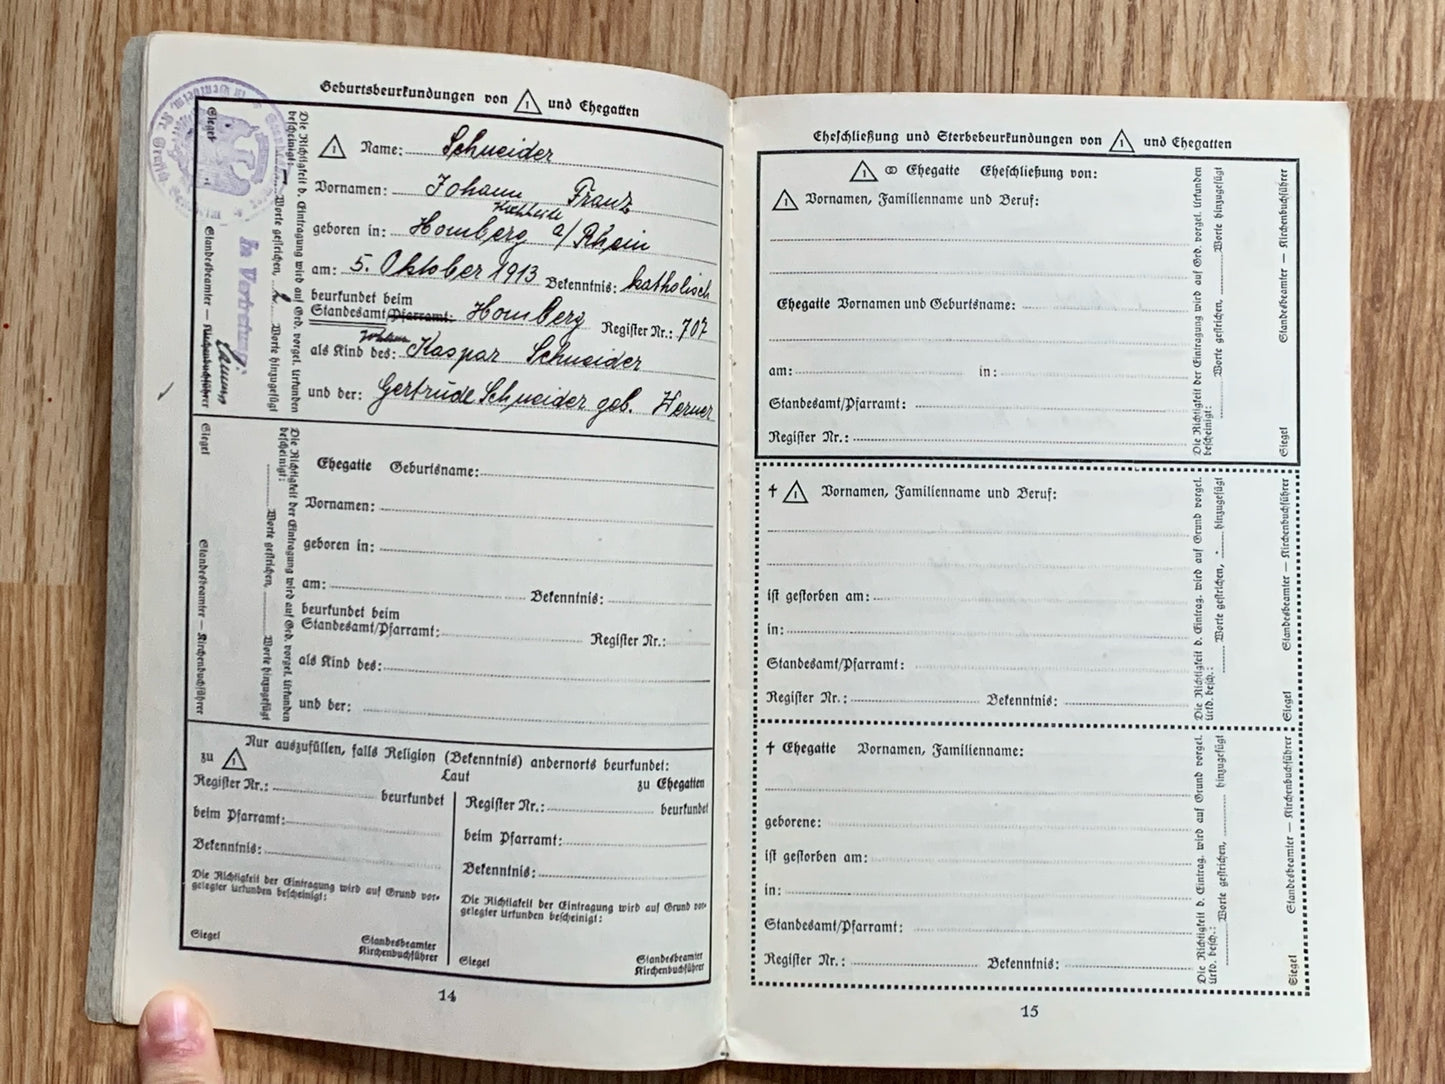 Geburtsbeurkundungen von 1 und Ehegatten
1 Name: Schneider
Vornamen: Johann Franz
geboren in: Homberg a/ Rhein
am: 5. Oktober 1913 Bekenntnis: katholisch
beurkundet beim
Standesamt/Pfarramt: Homberg Register Nr.: 707
Johann
als Kind des: Kaspar Schneider
und der: Gertrude Schneider geb. Werner
Die Richtigkeit d. Eintragung wird auf Grd. vorgel. Urkunden
bescheinigt: Worte gestrichen, Worte hinzugefügt
In Vertretung
Siegel Standesbeamter — Kirchenbuchführer
Ehegatte Geburtsname:
Vornamen:
geboren in:
am: Bekenntnis:
beurkundet beim
Standesamt/Pfarramt: Register Nr.:
als Kind des:
und der:
Die Richtigkeit der Eintragung wird auf Grd. vorgel. Urkunden
bescheinigt: Worte gestrichen, Worte hinzugefügt
Siegel Standesbeamter — Kirchenbuchführer
Nur auszufüllen, falls Religion (Bekenntnis) andernorts beurkundet:
zu 1 Laut zu Ehegatten
Register Nr.: beurkundet
beim Pfarramt:
Bekenntnis:
Die Richtigkeit der Eintragung wird auf Grund vor-
gelegter Urkunden bescheinigt:
Siegel Standesbeamter
Kirchenbuchführer
Register Nr.: beurkundet
beim Pfarramt:
Bekenntnis:
Die Richtigkeit der Eintragung wird auf Grund vor-
gelegter Urkunden bescheinigt:
Siegel Standesbeamter
Kirchenbuchführer
14
Eheschließung und Sterbebeurkundungen von 1 und Ehegatten
1 ⚭ Ehegatte Eheschließung von:
1 Vornamen, Familienname und Beruf:
Ehegatte Vornamen und Geburtsname:
am: in:
Standesamt/Pfarramt:
Register Nr.:
Die Richtigkeit der Eintragung wird auf Grd. vorgel. Urkunden
bescheinigt: Worte gestrichen, Worte hinzugefügt
Siegel Standesbeamter — Kirchenbuchführer
† 1 Vornamen, Familienname und Beruf:
ist gestorben am:
in:
Standesamt/Pfarramt:
Register Nr.: Bekenntnis:
Die Richtigkeit d. Eintrag. wird auf Grund vorgel.
Urkd. besch.: Worte gestrichen, hinzugefügt
Siegel Standesbeamter — Kirchenbuchführer
† Ehegatte Vornamen, Familienname:
geborene:
ist gestorben am:
in:
Standesamt/Pfarramt:
Register Nr.: Bekenntnis:
Die Richtigkeit d. Eintrag. wird auf Grund vorgel.
Urkd. besch.: Worte gestrichen, hinzugefügt
Siegel Standesbeamter — Kirchenbuchführer
15